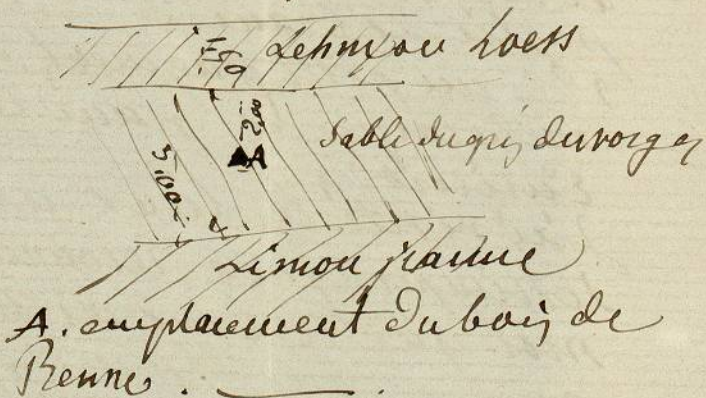 1.60 Lehm ou Loess
2.00
A
Sable du grès des vosges
5.00
Limon jaune
A. emplacement du bois de
Renne.